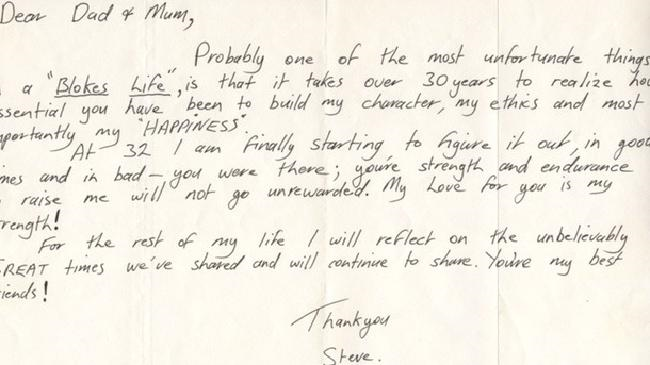 Dear Dad & Mum,
Probably one of the most unfortunate things
a "Blokes Life", is that it takes over 30 years to realize ho
ssential you have been to build my character, my ethics and most
portantly my "HAPPINESS".
At 32 I am finally starting to figure it out, in good
mes and in bad – you were there; you're strength and endurance
raise me will not go unrewarded. My Love for you is my
rength!
For the rest of my life I will reflect on the unbelievably
REAT times we've shared and will continue to share. You're my best
iends!
Thankyou
Steve.